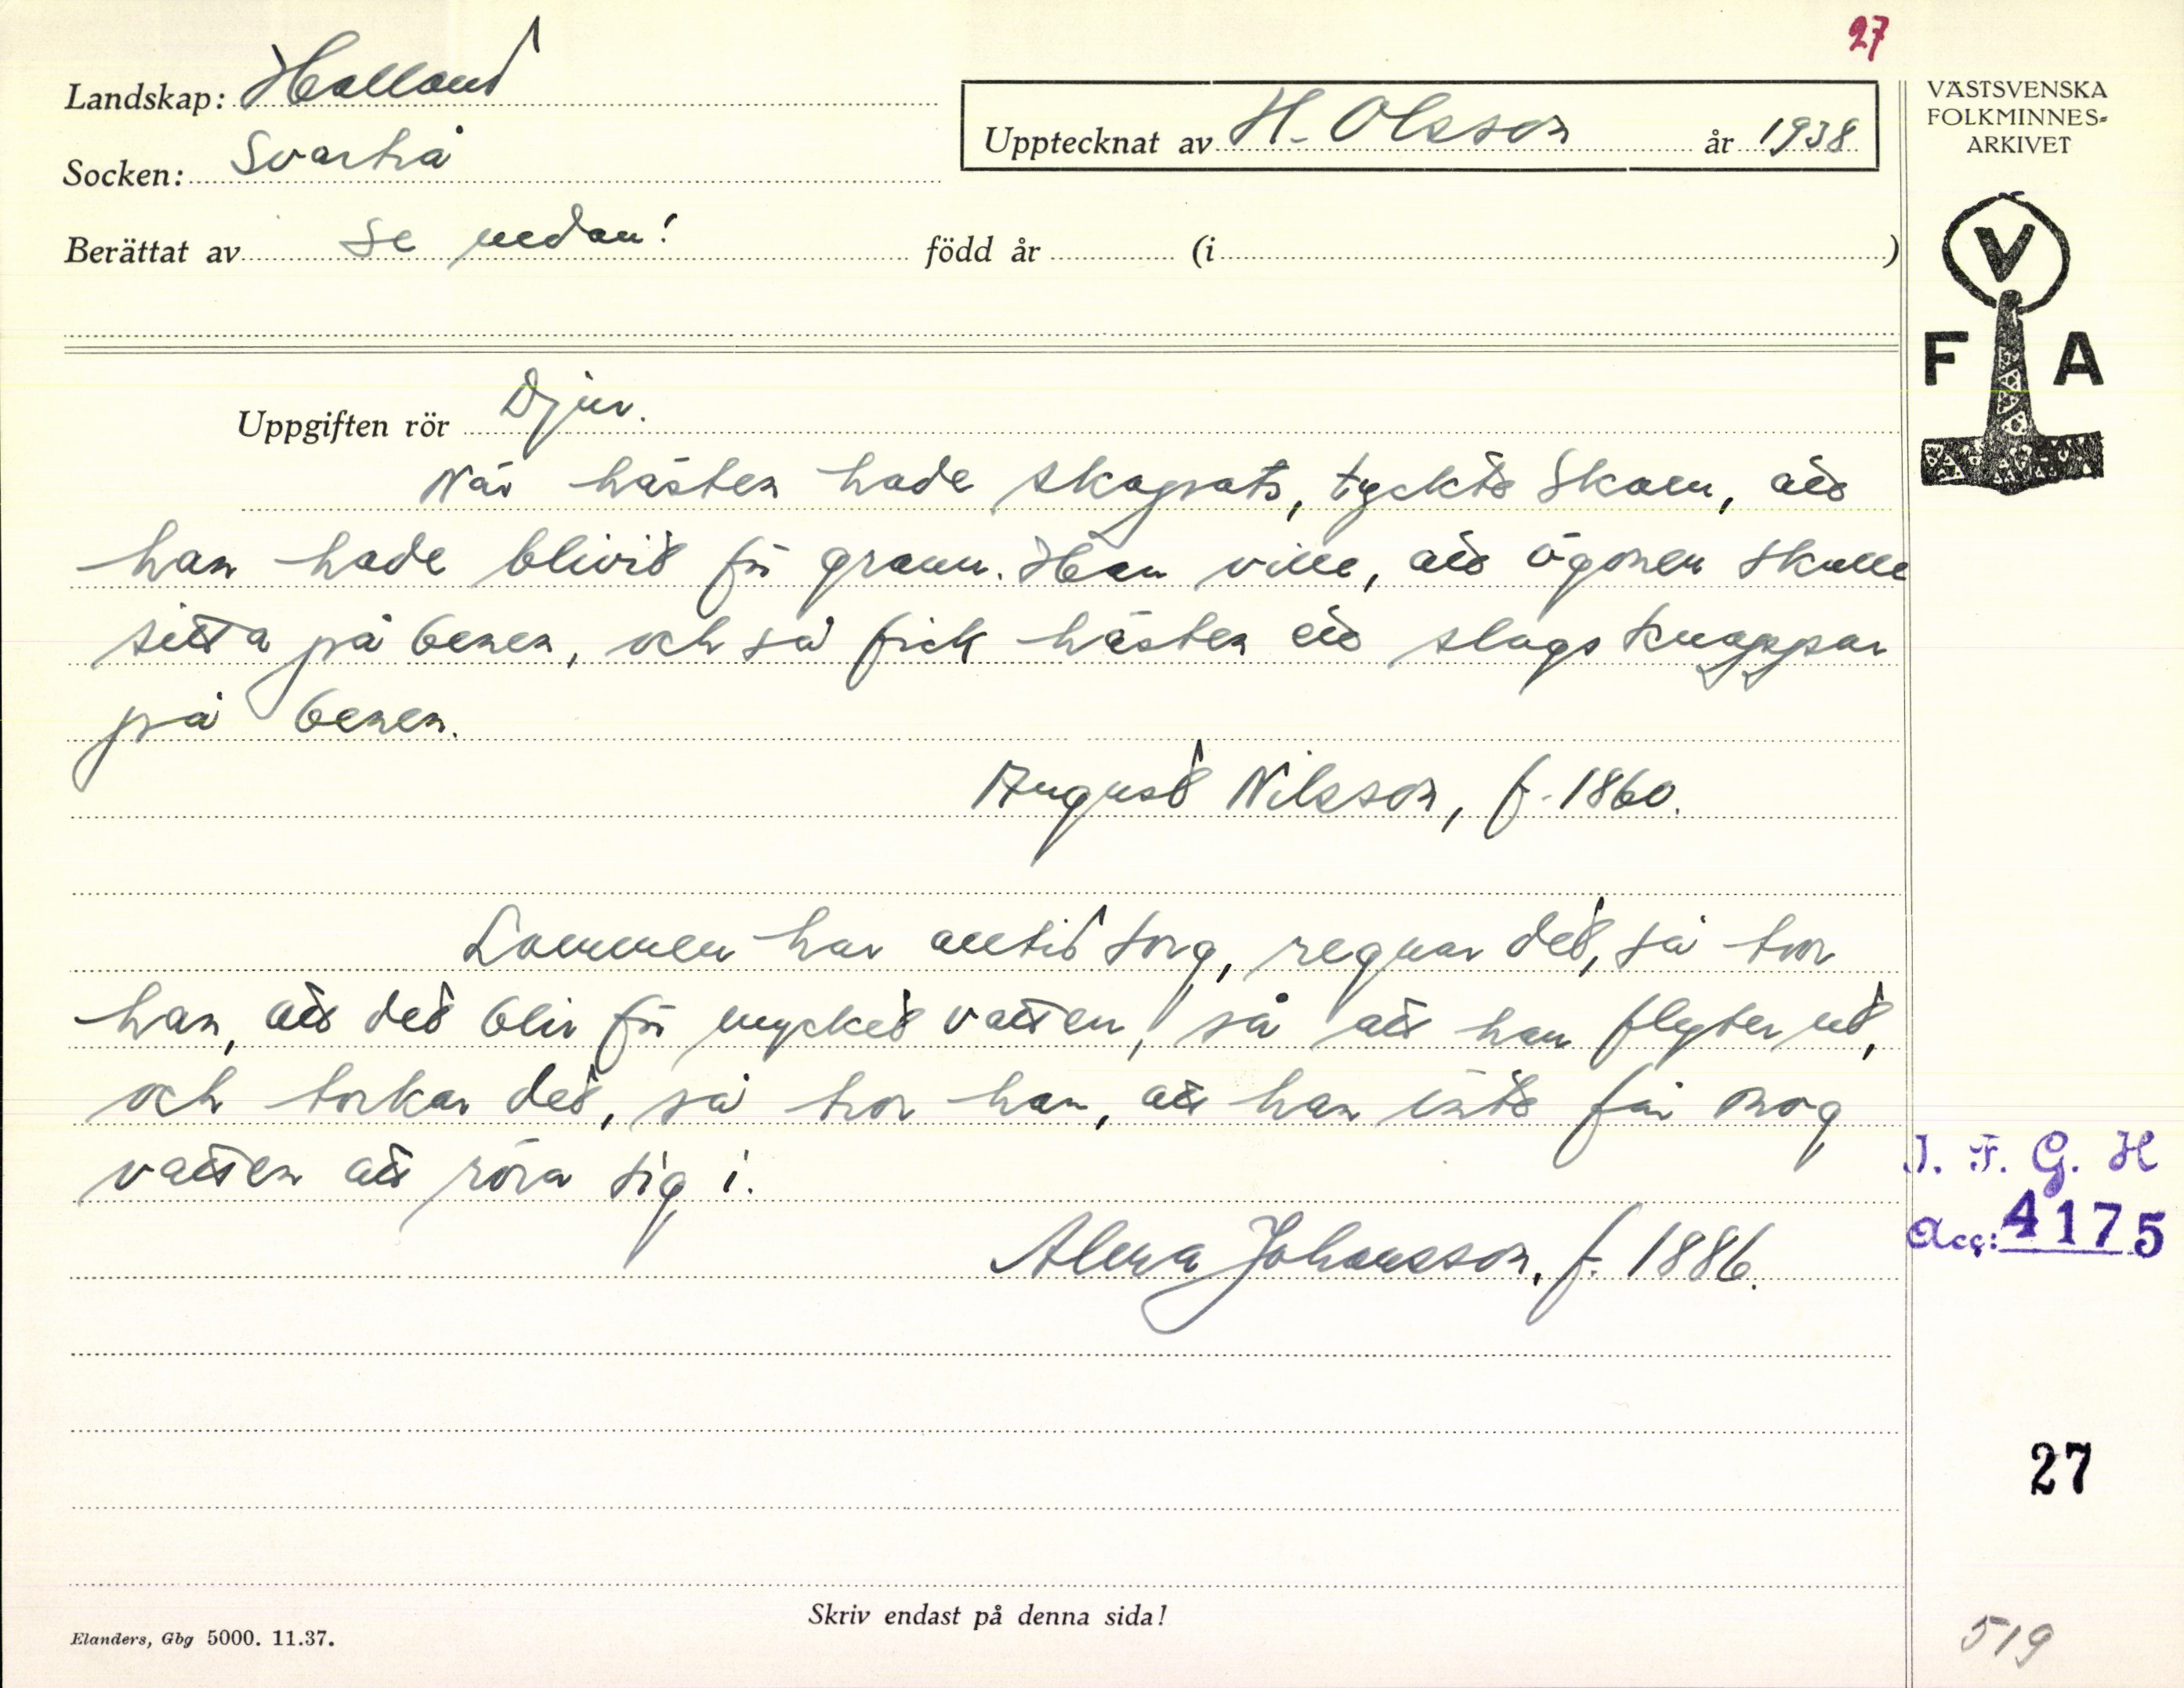 27
Landskap: Halland
Socken: Svartrå
Berättat av se nedan! född år (i )
Upptecknat av H. Olsson år 1938
VÄSTSVENSKA
FOLKMINNES-
ARKIVET
V
F A
Uppgiften rör Djur.
När hästen hade skapats, tyckte Skam, att
han hade blivit för grann. Han ville, att ögonen skulle
sitta på benen, och så fick hästen ett slags knappar
på benen.
August Nilsson, f. 1860.
Lommen har alltid sorg, regnar det, så tror
han, att det blir för mycket vatten, så att han flyter ut,
och torkar det, så tror han, att han inte får nog
vatten att röra sig i.
Alma Johansson, f. 1886.
I. F. G. H
Acc: 4175
27
Skriv endast på denna sida!
Elanders, Gbg 5000. 11.37.
519